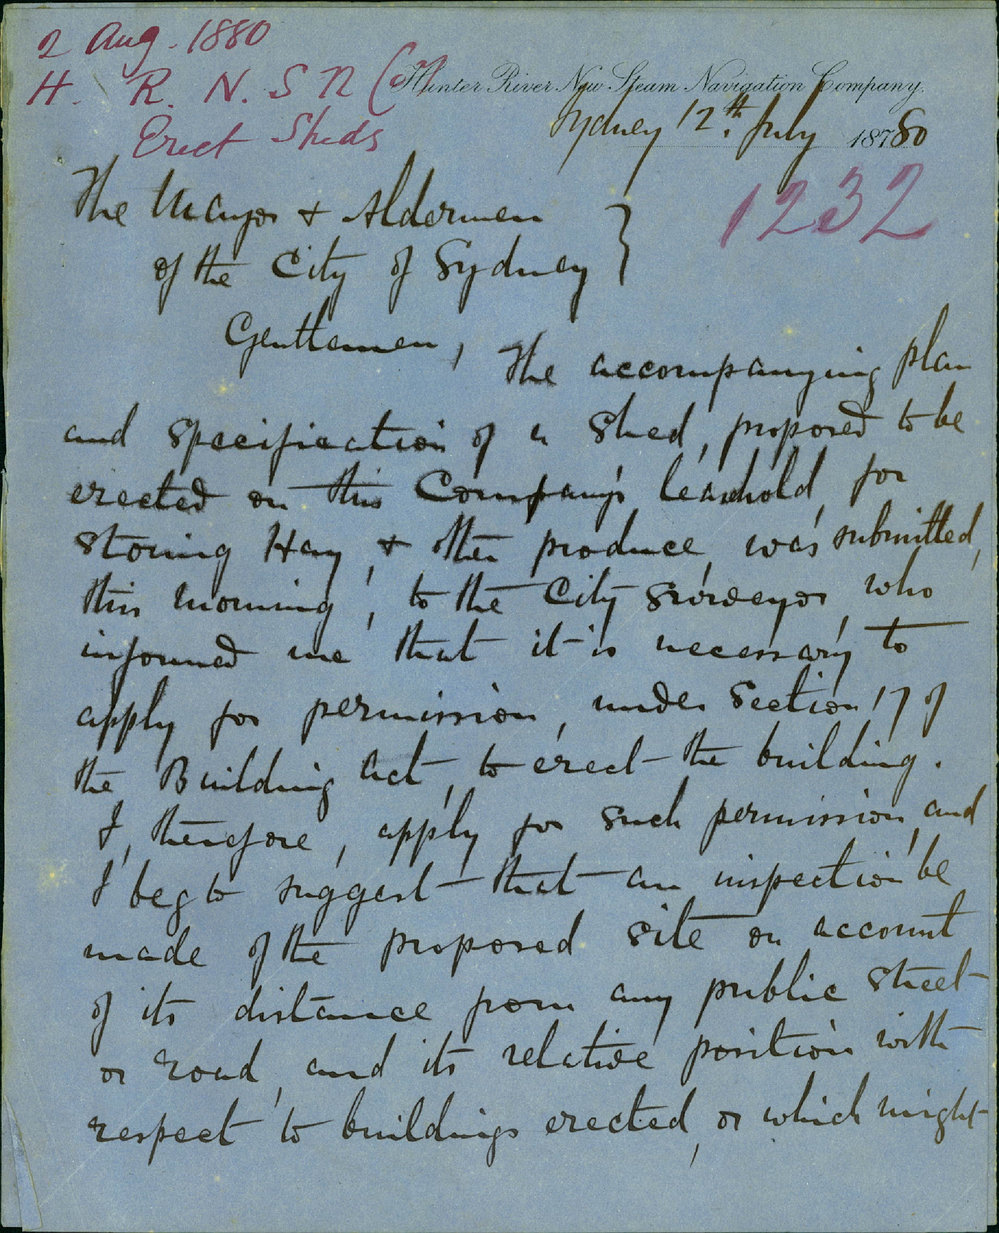 2 Aug. 1880
H. R. N. S N Co
Erect Sheds
Hunter River New Steam Navigation Company.
Sydney 12th July 18780
1232
The Mayor & Aldermen
of the City of Sydney
Gentlemen,
The accompanying plan
and specification of a Shed, proposed to be
erected on this Company's leasehold, for
storing Hay, & other produce, was submitted,
this morning, to the City Surveyor, who
informed me that it is necessary to
apply for permission, under Section 17 of
the Building Act, to erect the building.
I, therefore, apply for such permission, and
I beg to suggest that an inspection be
made of the proposed site on account
of its distance from any public street
or road, and its relative position with
respect to buildings erected, or which might